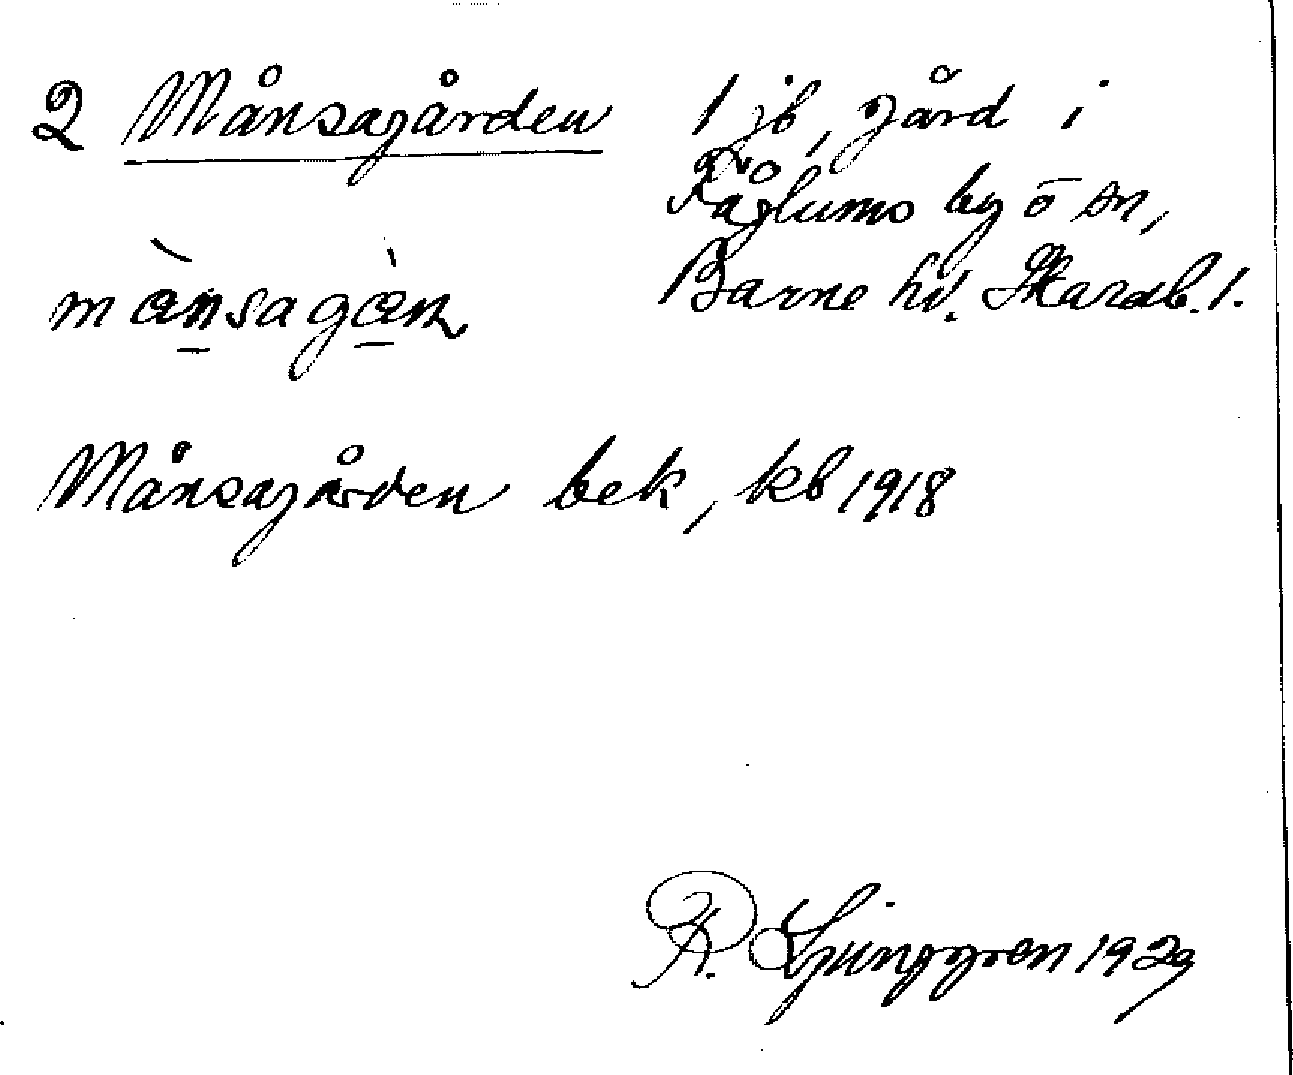 2 Månsagården 1 jb, gård i
Fåglums by o sn,
Barne hd. Skarab. l.
mànsagàn
Månsagården bek, kb 1918
R. Ljunggren 1929